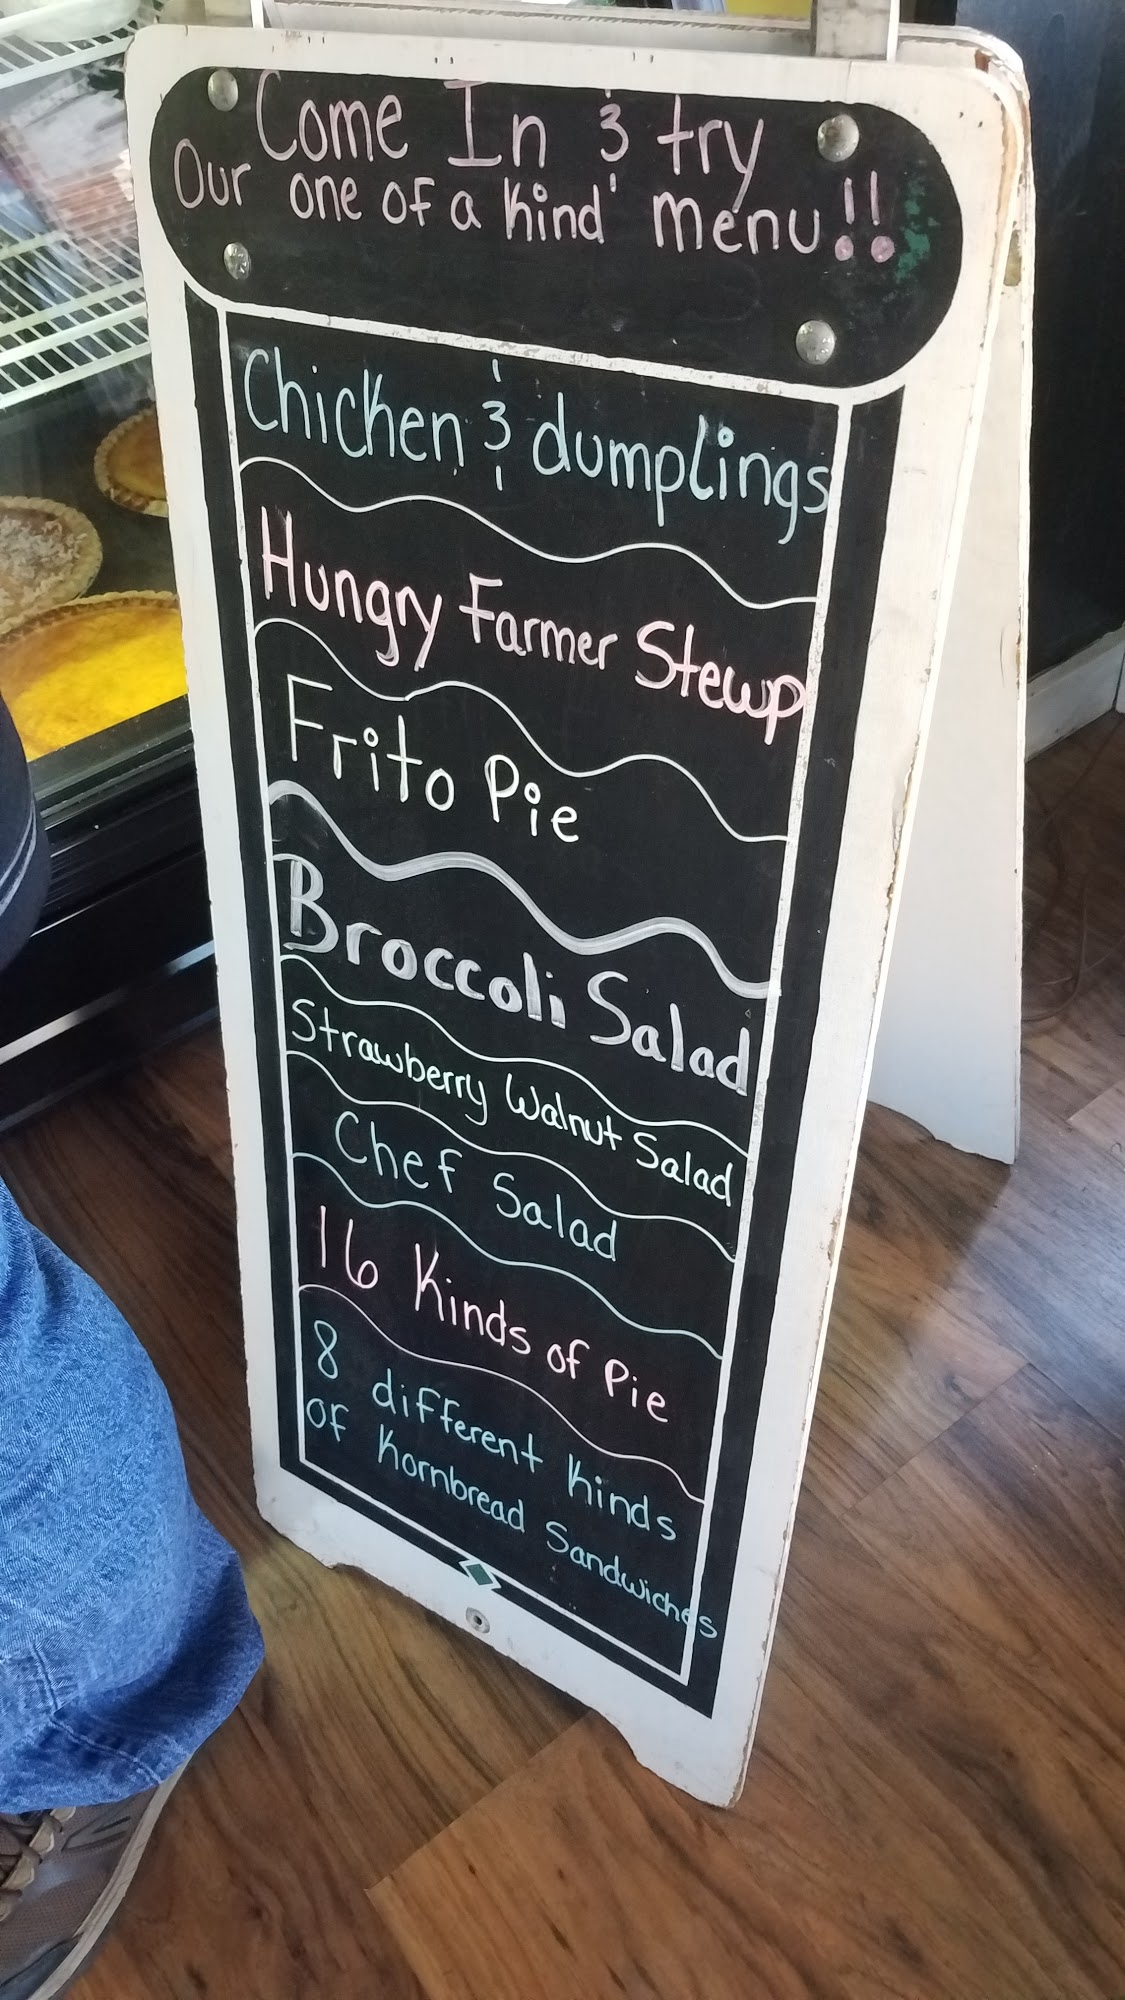 Come In & try
Our one of a kind menu!!
Chicken & dumplings
Hungry Farmer Stewp
Frito Pie
Broccoli Salad
Strawberry Walnut Salad
Chef Salad
16 Kinds of Pie
8 different Kinds
of Kornbread Sandwiches